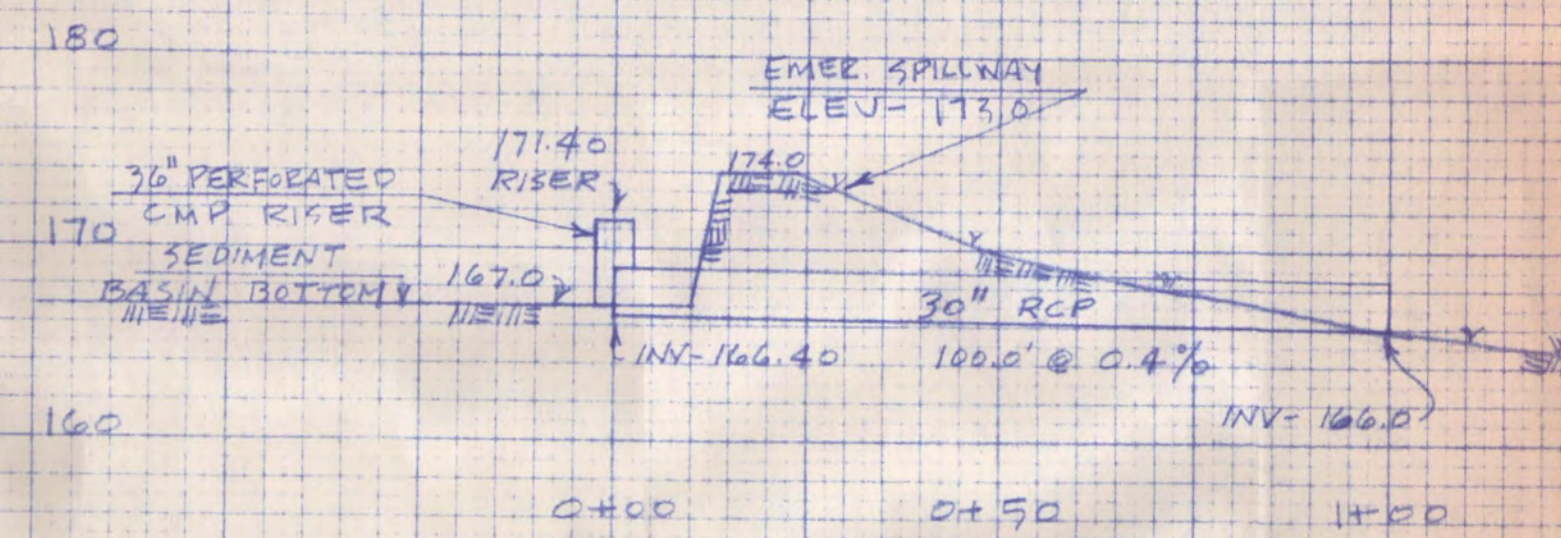 180
EMER. SPILLWAY
ELEV- 173.0
171.40
RISER
174.0
36" PERFORATED
CMP RISER
170
SEDIMENT
BASIN BOTTOM
167.0
30" RCP
INV- 166.40
100.0' @ 0.4%
INV- 166.0
160
0+00
0+50
1+00